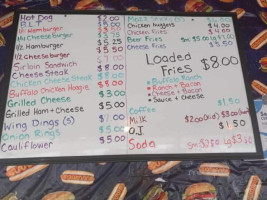 Hot Dog $2.00
BLT $5.00
1/4 Hamburger
1/4 Cheeseburger $3.75
1/2 Hamburger $5.25
1/2 Cheeseburger $5.50
Sirloin Sandwich $8.00
Cheese Steak $8.00
Chicken Cheese Steak $8.00
Buffalo Chicken Hoagie $8.00
Grilled Cheese $3.00
Grilled Ham + Cheese $5.00
Wing Dings (5) $7.00
Onion Rings $5.00
Cauliflower $5.00
Chicken Nuggets $4.00
Chicken Fries $4.00
Beer Fries
Cheese Fries $3.50
Loaded Fries $8.00
* Buffalo Ranch
* Ranch + Bacon
* Cheese + Bacon
* Sauce + Cheese
Coffee $1.50
Milk $2.00
O.J $1.50
Soda Sm $2.50 Lg $3.50